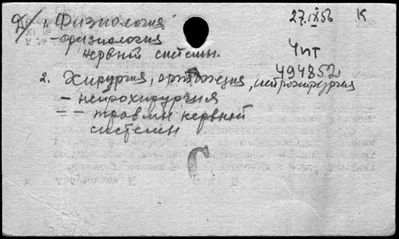 1. Физиология
27.IX56 К
- физиология
нервной системы.
Чит
494852
2. Хирургия, ортопедия, нейрохирургия
- нейрохирургия
= - травмы нервной
системы
С